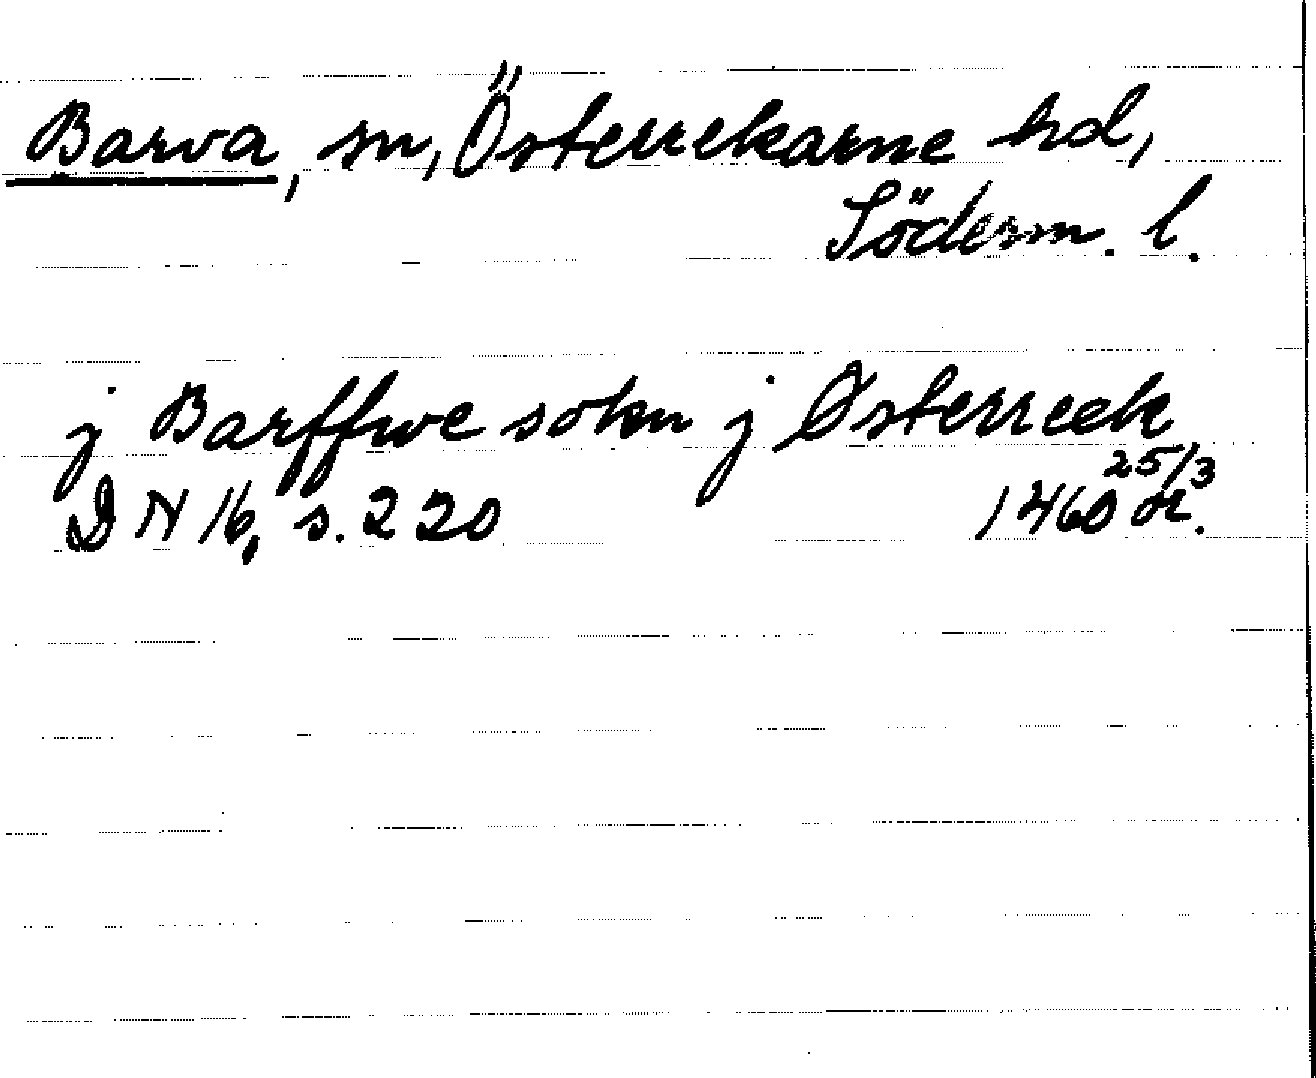 Barva, sn, Österrekarne hd,
Söderm. l.
j Barffwe sokn j Østerreek
DN 16, s. 220 1460 25/3 or.